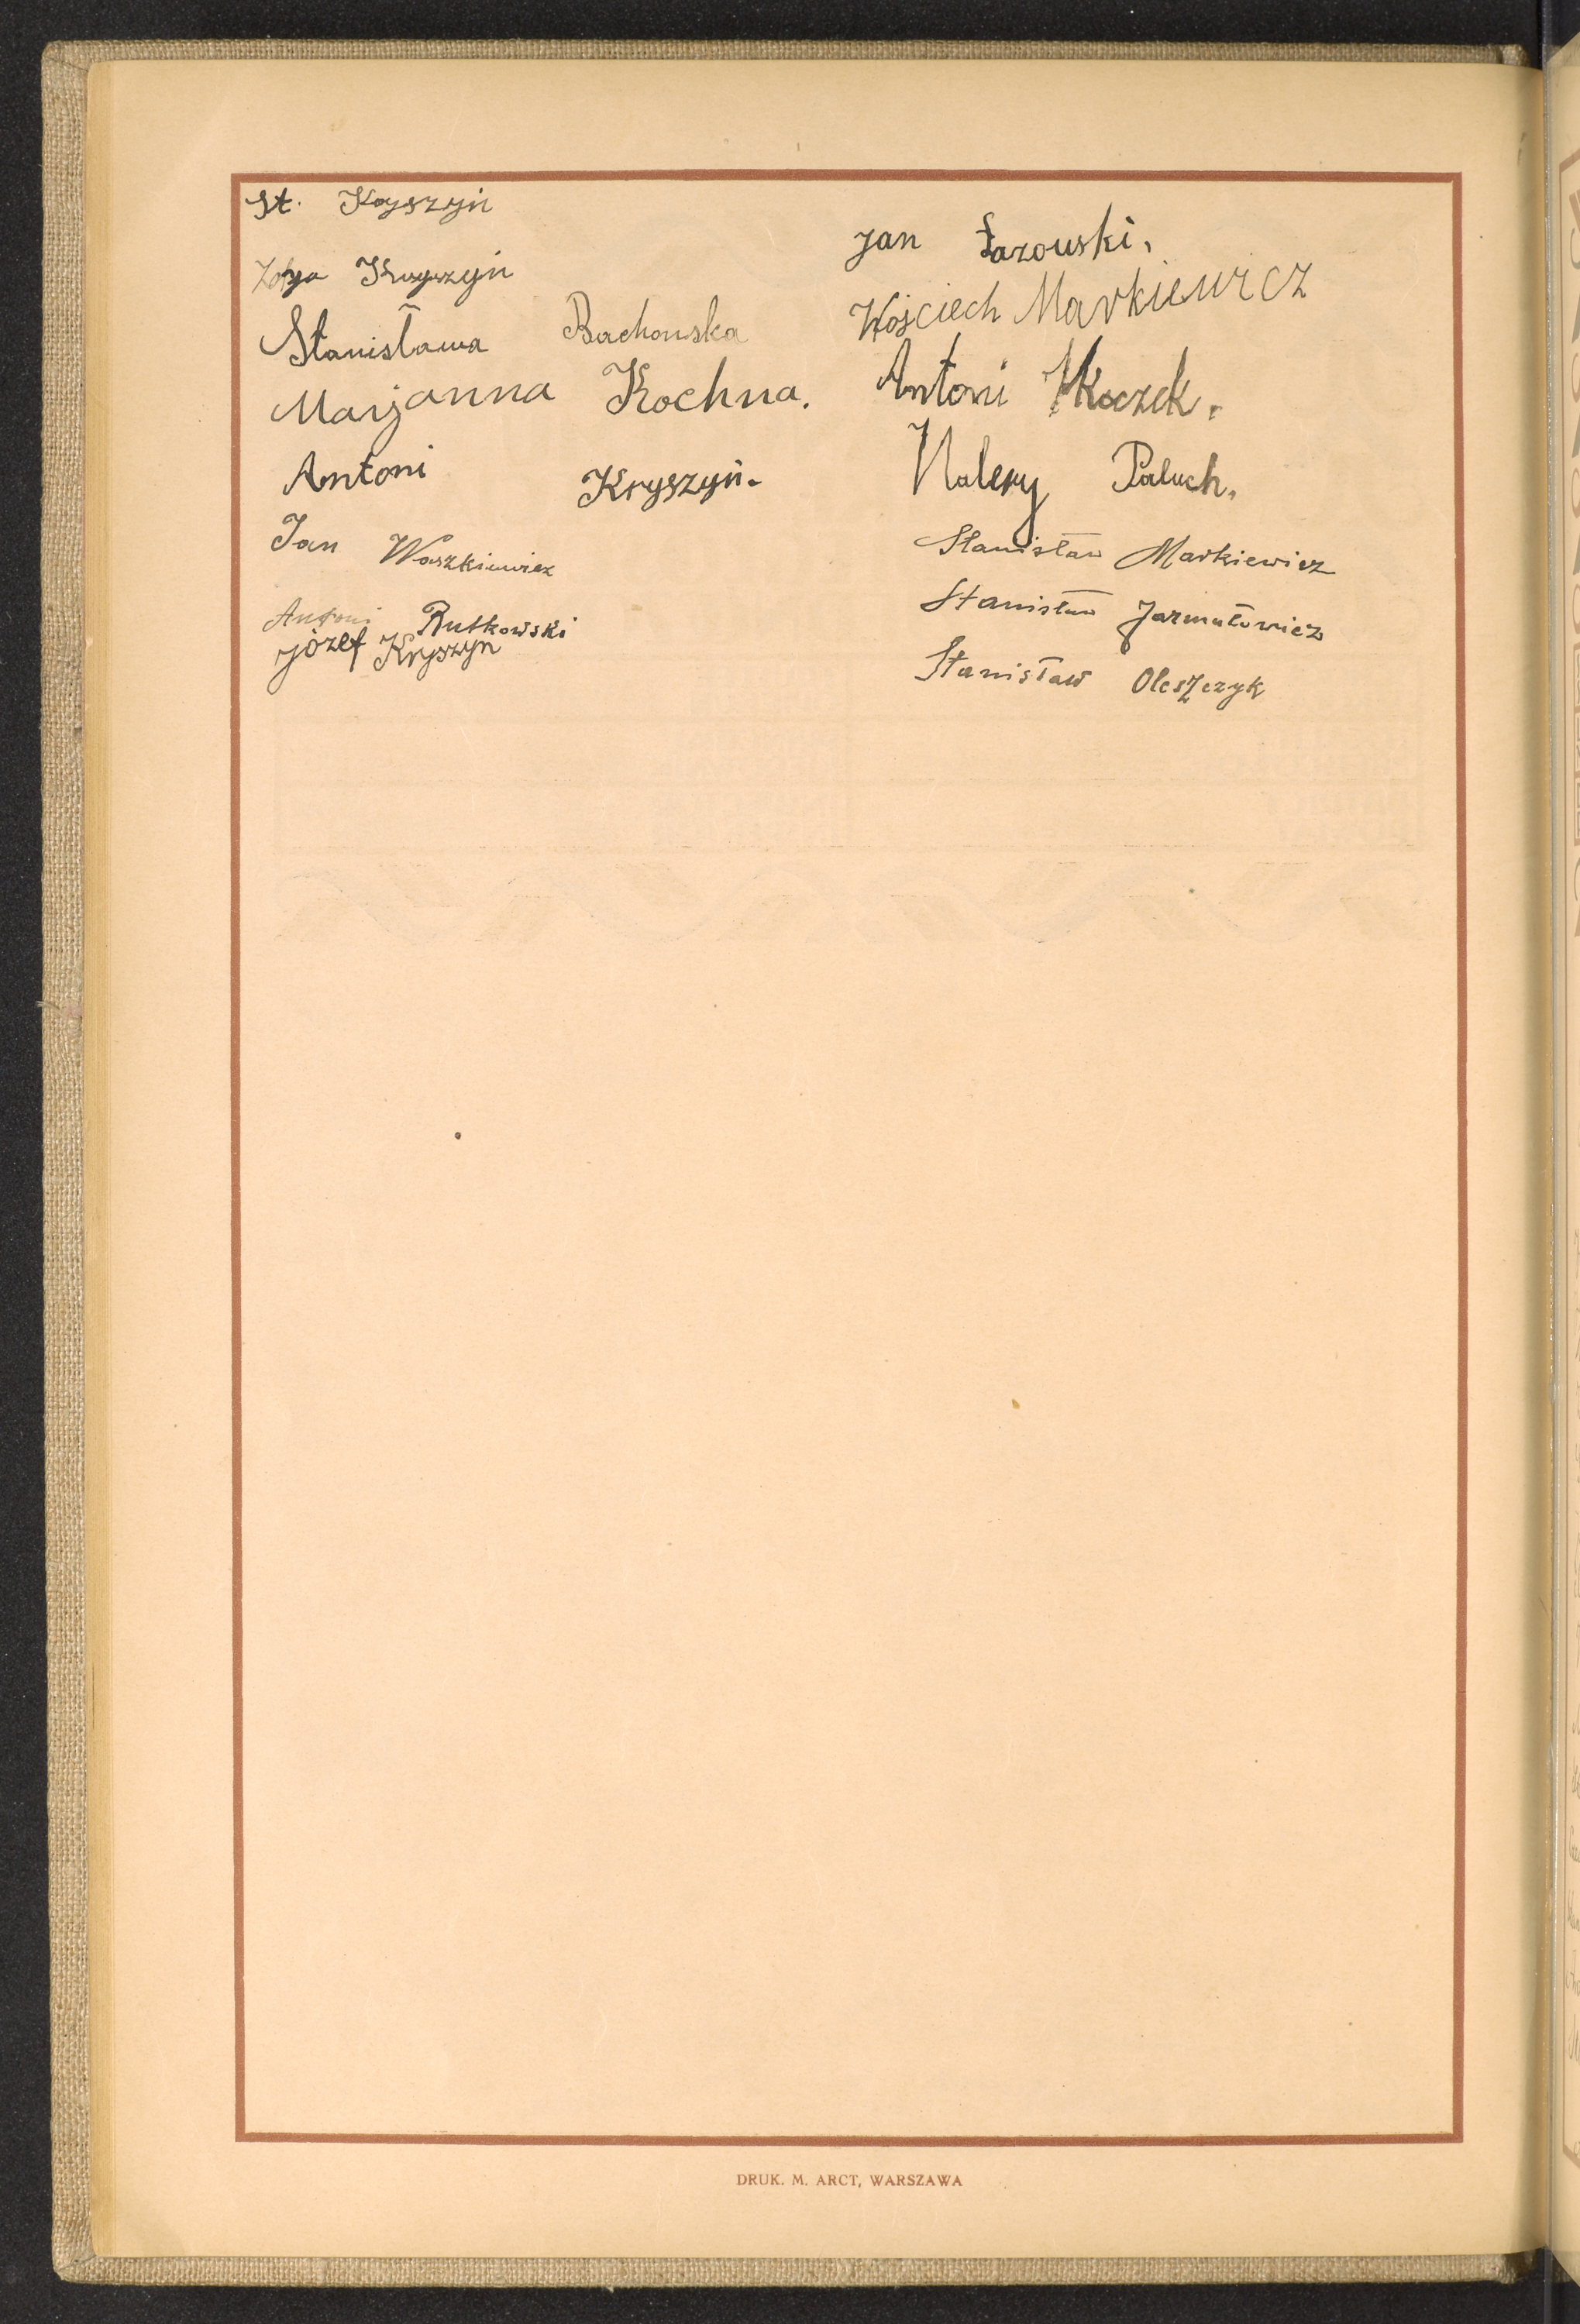 St. Kryszyń
Zofja Kryszyń
Stanisława Bachowska
Marjanna Kochna.
Antoni Kryszyń.
Jan Waszkiewicz
Antoni Rutkowski
józef Kryszyn
Jan Łazowski,
Wojciech Markiewicz
Antoni Kłoczek.
Walery Paluch.
Stanisław Markiewicz
Stanisław Jarmułowicz
Stanisław Oleszczyk
DRUK. M. ARCT, WARSZAWA